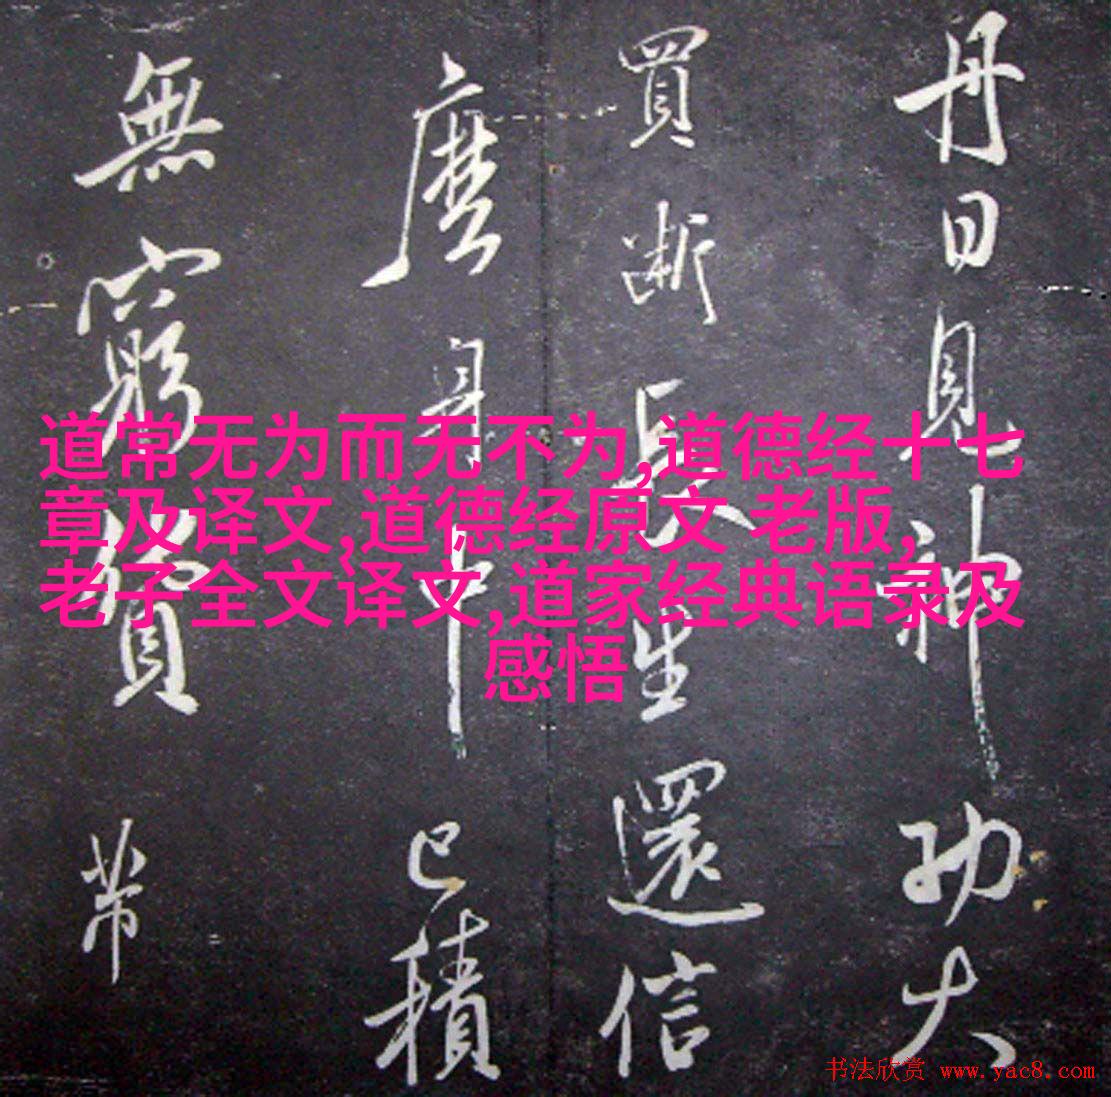 丹日見神功大
買断長生還信
麽身中已積
無窮 带
道常无为而无不为,道德经十七
章及译文,道德经原文 老版,
老子全文译文,道家经典语录及
感悟
书法欣赏 www.yac8.com